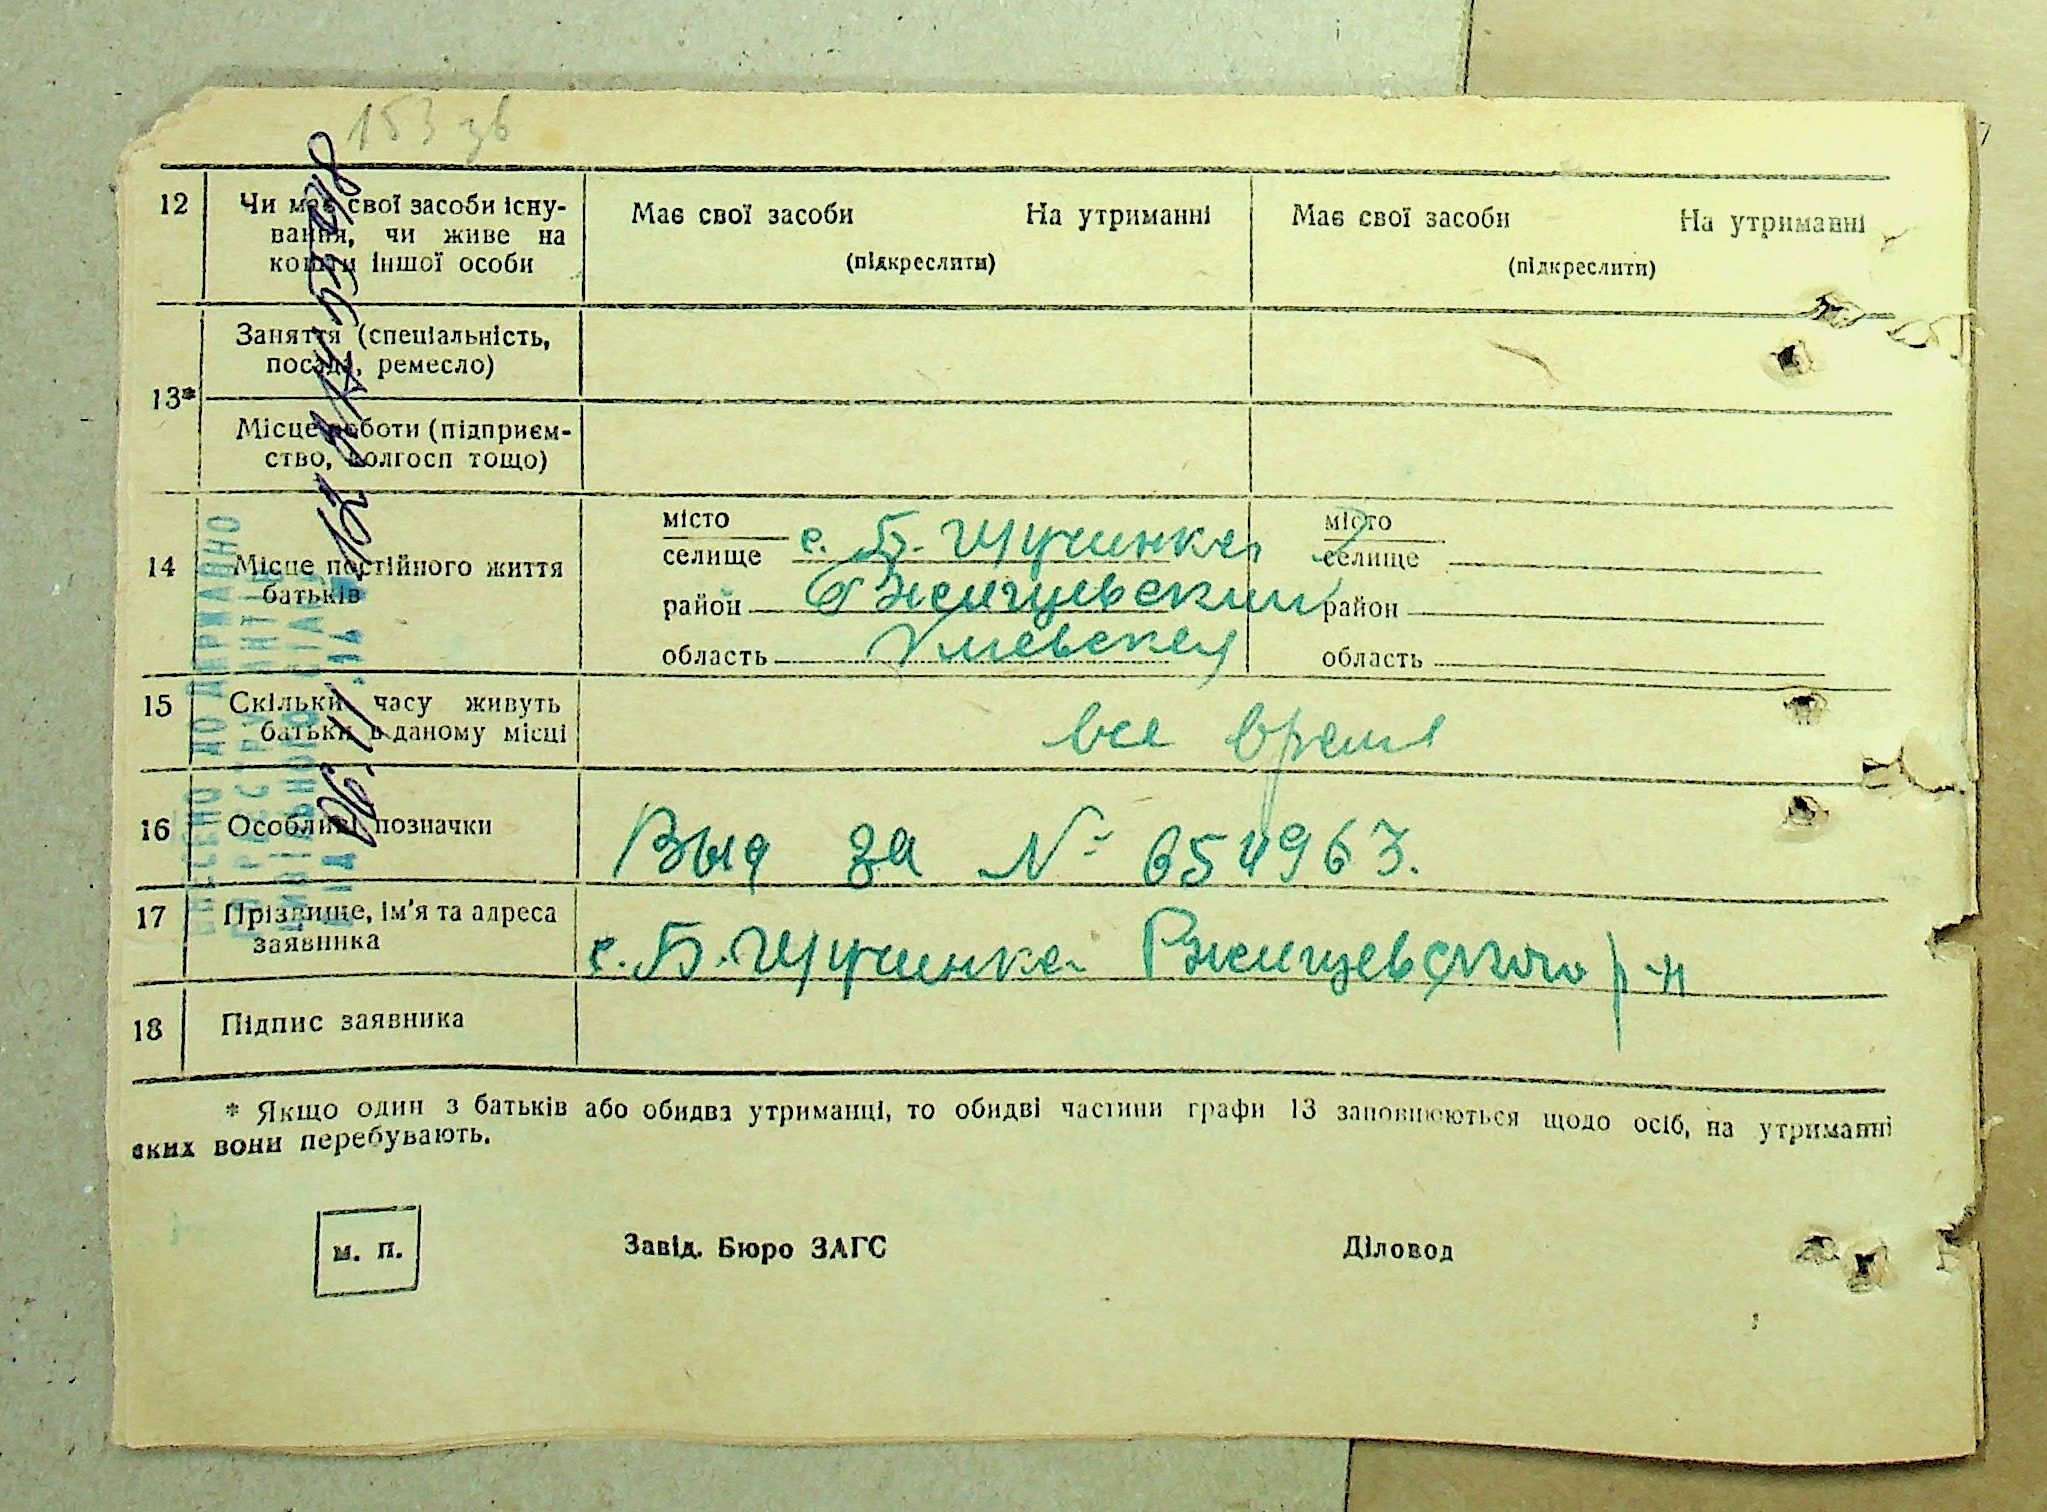 153 зв
12 Чи має свої засоби існу-
вання, чи живе на
кошти іншої особи
Має свої засоби На утриманні
(підкреслити)
Має свої засоби На утриманні
(підкреслити)
13*
Заняття (спеціальність,
посада, ремесло)
Місце роботи (підприєм-
ство, колгосп тощо)
14 Місце постійного життя
батьків
місто
селище с. Б. Щучинка
район Ржищевский
область Киевская
місто
селище
район
область
15 Скільки часу живуть
батьки в даному місці
все время
16 Особливі позначки
Выд за № 654963.
17 Прізвище, ім'я та адреса
заявника
с. Б. Щучинка Ржищевского р-н
18 Підпис заявника
* Якщо один з батьків або обидва утриманці, то обидві частини графи 13 заповнюються щодо осіб, на утриманні
яких вони перебувають.
м. п.
Завід. Бюро ЗАГС
Діловод
ВНЕСЕНО ДО ДЕРЖАВНО